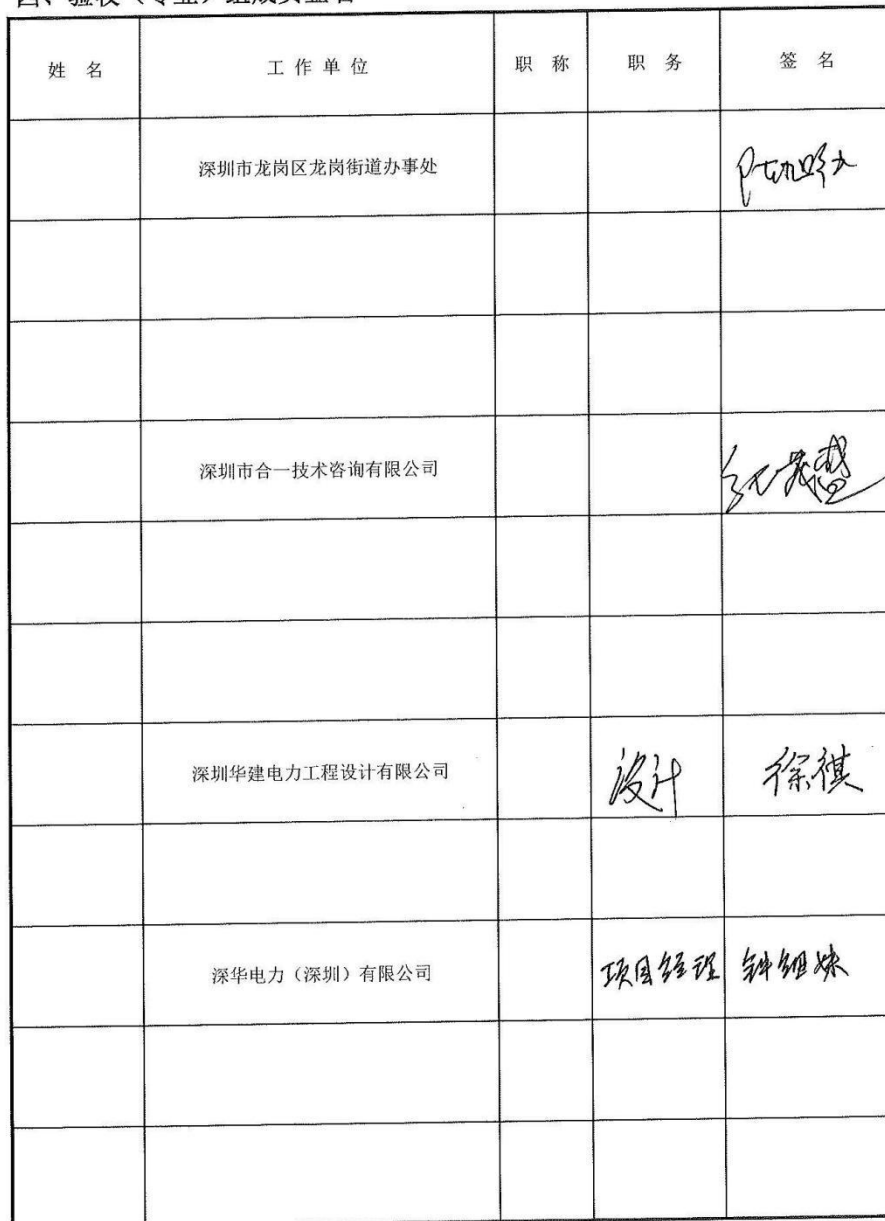 姓 名 工 作 单 位 职 称 职 务 签 名
深圳市龙岗区龙岗街道办事处
深圳市合一技术咨询有限公司
深圳华建电力工程设计有限公司 设计 徐祺
深华电力（深圳）有限公司 项目经理 钟组妹